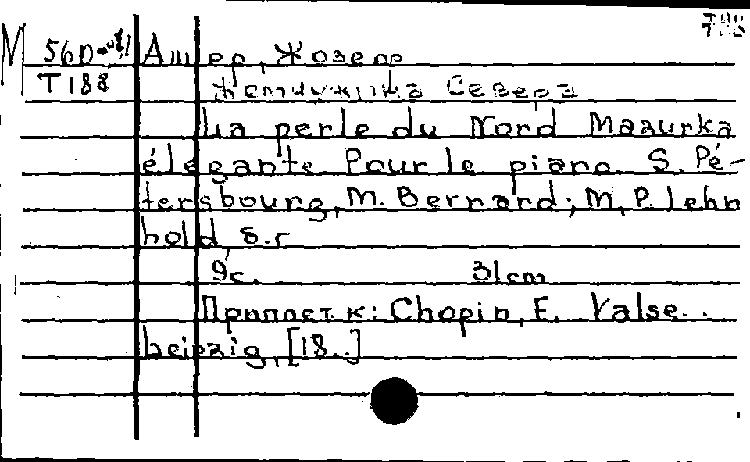 М 56D Ашер, Жозеф
Т188 Жемчужина Севера
La perle du Nord Mazurka
élégante Pour le piano. S. Pé-
tersbourg, M. Bernard; M, P. Lehn
hold, s.г
9с. 31cm
Приплет к: Chopin, F. Valse..
Leipzig, [18..]